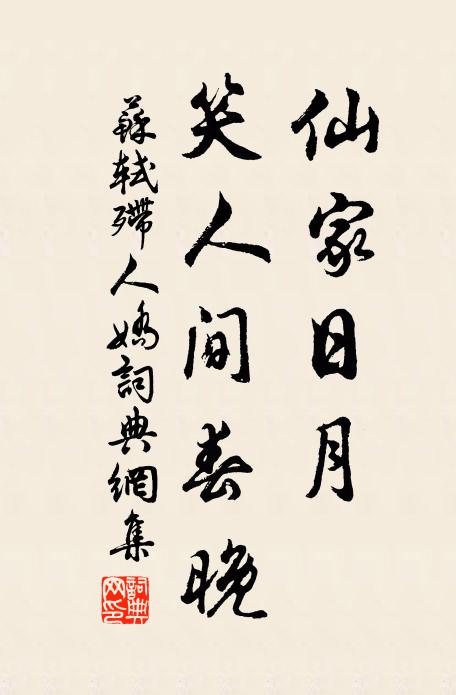 仙家日月
笑人间春晚
蘇軾殢人嬌詞典網集
詞典网印